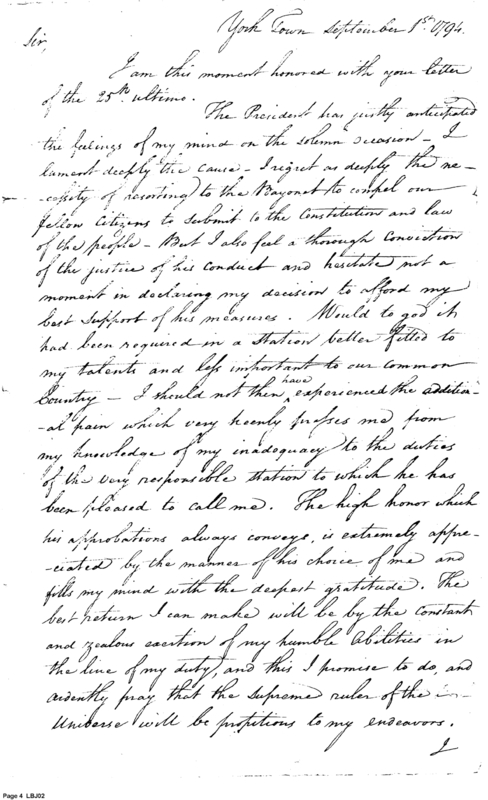 York Town September 1st. 1794.
Sir,
I am this moment honored with your letter
of the 25th. ultimo.
The President has justly anticipated
the feelings of my mind on the solemn occasion – I
lament deeply the cause – I regret as deeply the ne–
–cessity of resorting to the Bayonet to compel our
fellow Citizens to submit to the Constitution and law
of the people – But I also feel a thorough Conviction
of the justice of his Conduct and hesitate not a
moment in declaring my decision to afford my
best support of his measures. Would to god it
had been required in a Station better fitted to
my talents and less important to our common
Country – I should not then have experienced the addition–
–al pain which very keenly presses me from
my knowledge of my inadequacy to the duties
of the very responsible station to which he has
been pleased to call me. The high honor which
his approbations always conveys, is extremely appre–
–ciated by the manner of his choice of me and
fills my mind with the deepest gratitude. The
best return I can make will be by the Constant
and zealous exertion of my humble Abilities in
the line of my duty, and this I promise to do, and
ardently pray that the Supreme ruler of the
Universe will be propitious to my endeavors.
I
Page 4 LBJ02